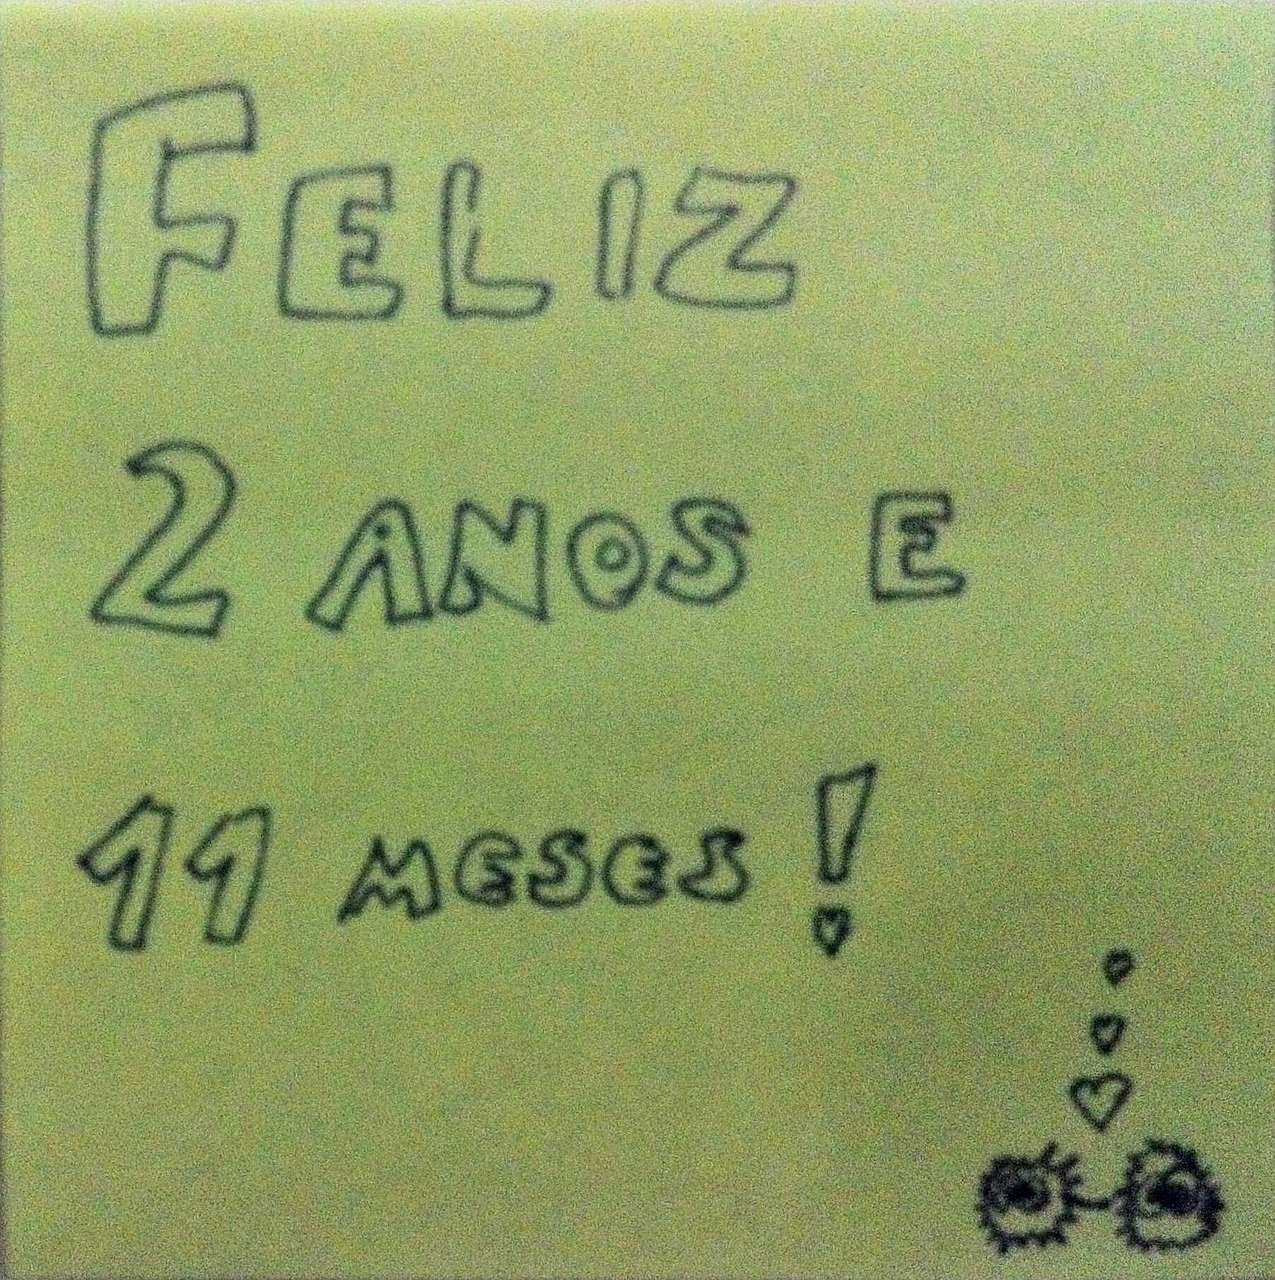 FELIZ
2 ANOS E
11 MESES!